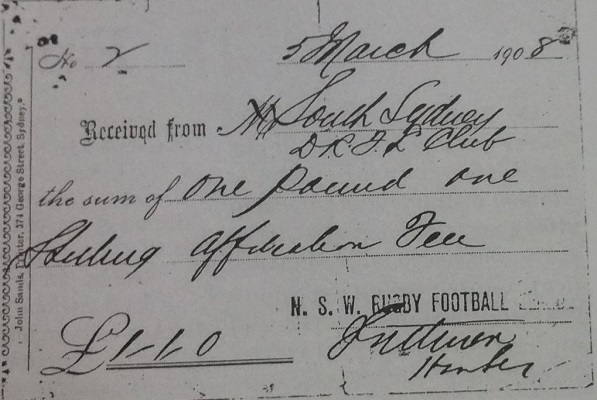 No 2 5 March 1908
Received from South Sydney
D R F L Club
the sum of One pound one
Sterling Affiliation Fee
N. S. W. RUGBY FOOTBALL LEAGUE
£1-1-0
John Sands, Printer, 374 George Street, Sydney.